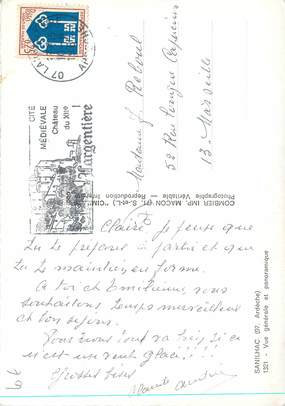 07 LARGENTIÈRE
ARDÈCHE
CITÉ
MÉDIÉVALE
Château
du XIIe
Largentière
Madame J Reboul
52 Rue
13 - Marseille
COMBIER IMP. MACON (71. S.-et-L.) "CIM"
Photographie Véritable - Reproduction Interdite
SANILHAC (07. Ardèche)
1321 - Vue générale et panoramique
Claire, Je pense que
tu te prépare à partir et que
tu te maintien en forme.
A toi et Emilienne, nous
souhaitons temps merveilleux
et bon séjour.
Pour nous tout va bien si ce
n'est une route glacé!!!
Grosses bises